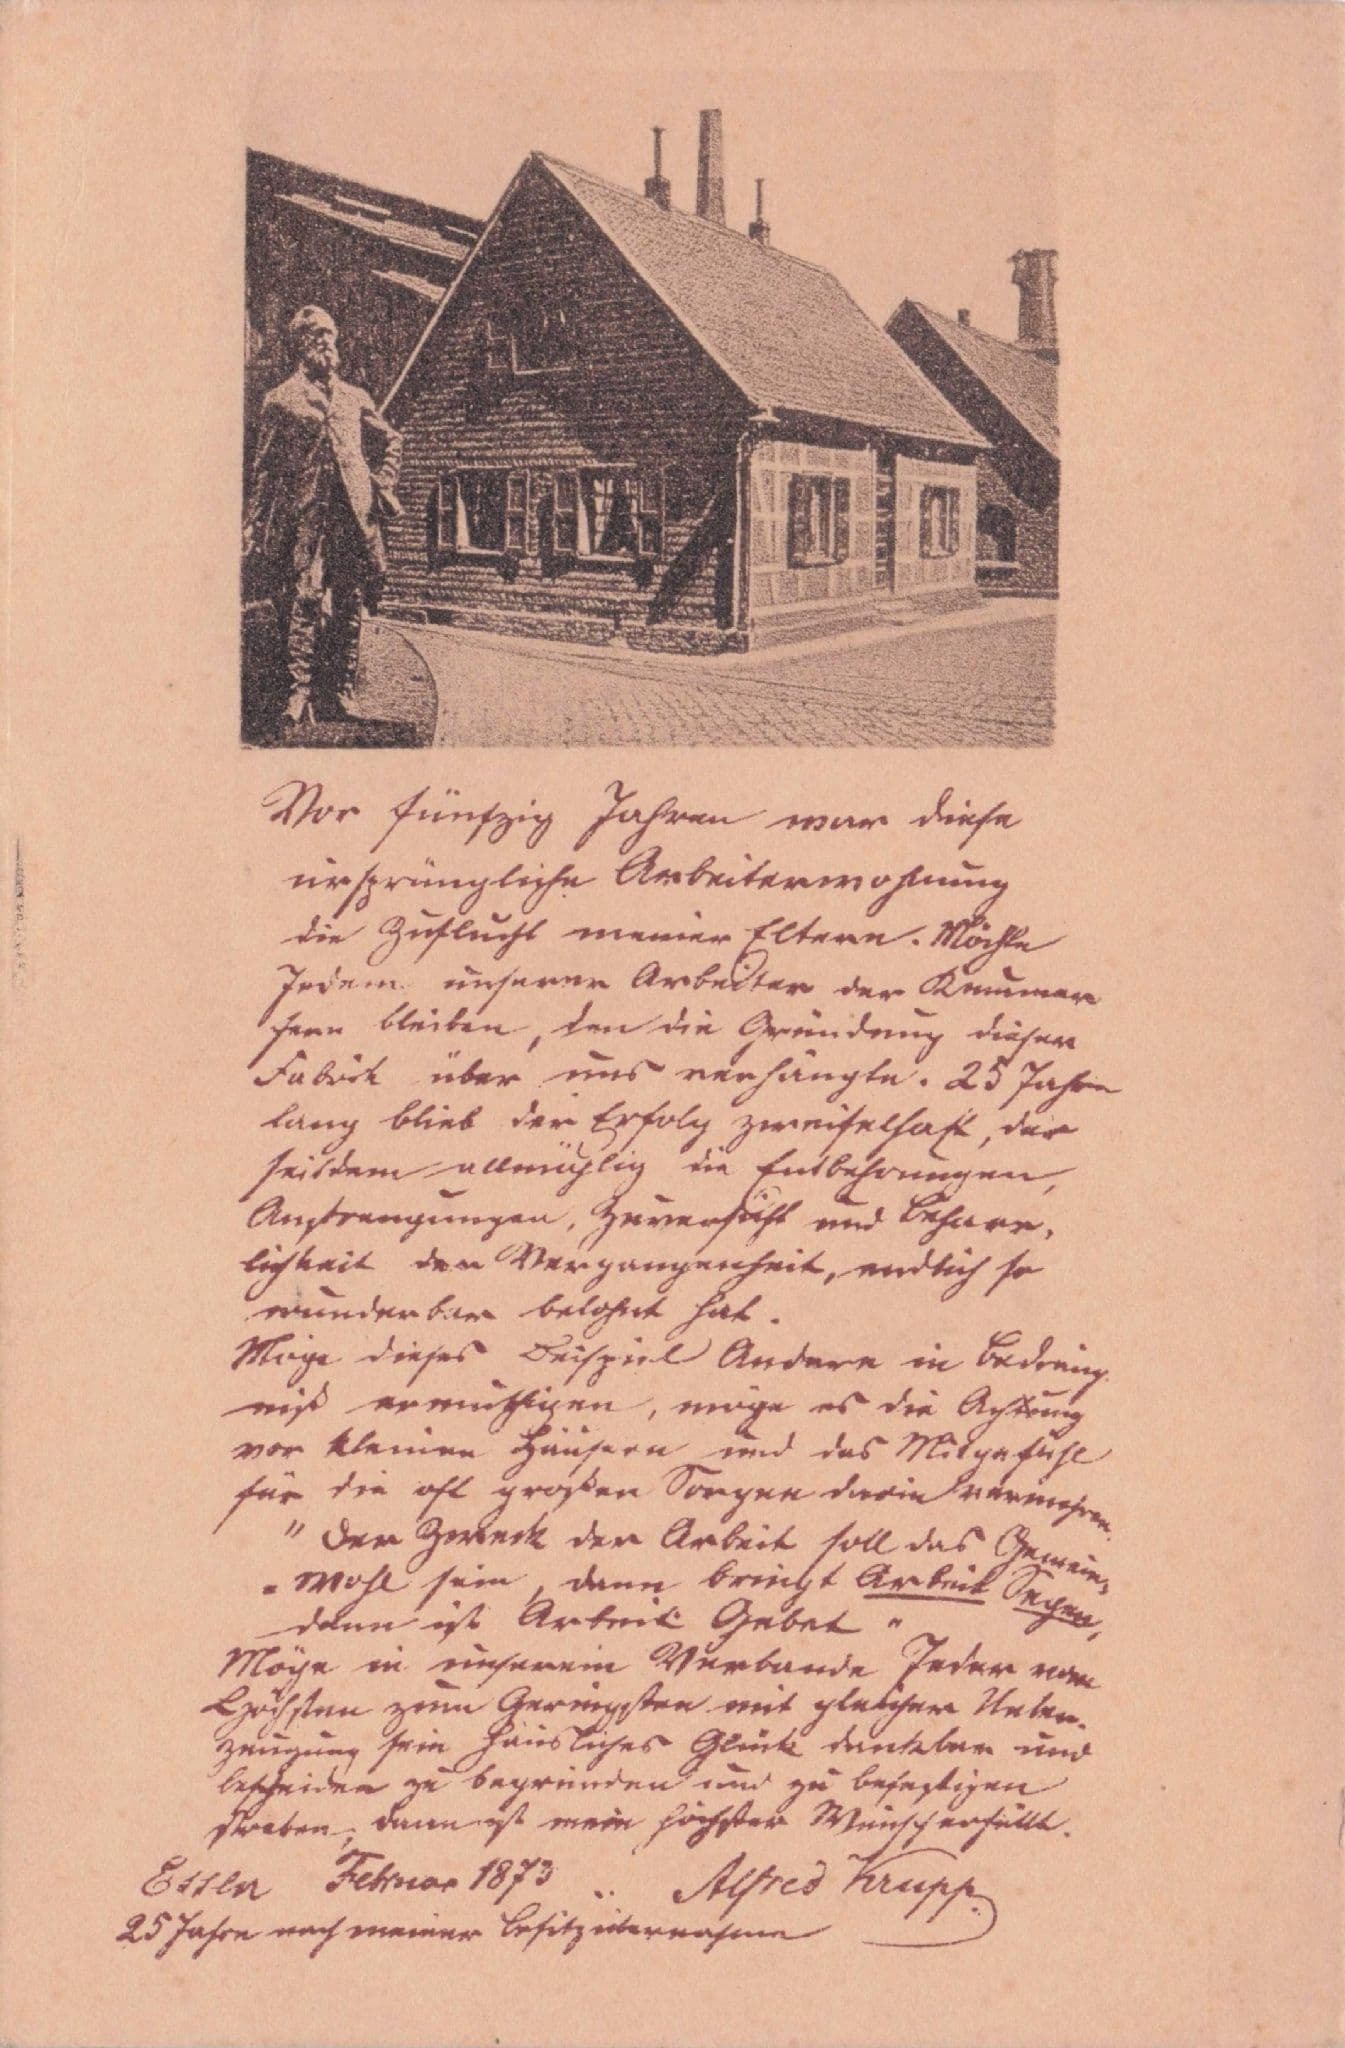 Vor fünfzig Jahren war diese
ursprüngliche Arbeiterwohnung
die Zuflucht meiner Eltern. Möchte
Jedem unserer Arbeiter der Kummer
fern bleiben, den die Gründung dieser
Fabrik über uns verhängte. 25 Jahre
lang blieb der Erfolg zweifelhaft, der
seitdem allmählig die Entbehrungen,
Anstrengungen, Zuversicht und Beharr-
lichkeit der Vergangenheit, endlich so
wunderbar belohnt hat.
Möge dieses Beispiel Andere in Bedräng
niß ermuthigen, möge es die Achtung
vor kleinen Häusern und das Mitgefühl
für die oft großen Sorgen darin vermehren.
"Der Zweck der Arbeit soll das Gemein-
"Wohl sein, dann bringt Arbeit Segen,
dann ist Arbeit Gebet"
Möge in unserem Verbande Jeder vom
Höchsten zum Geringsten mit gleicher Ueber-
zeugung sein häusliches Glück dankbar und
bescheiden zu begründen und zu befestigen
streben, dann ist mein höchster Wunsch erfüllt.
Essen Februar 1873 Alfred Krupp.
25 Jahre nach meiner Besitzübernahme